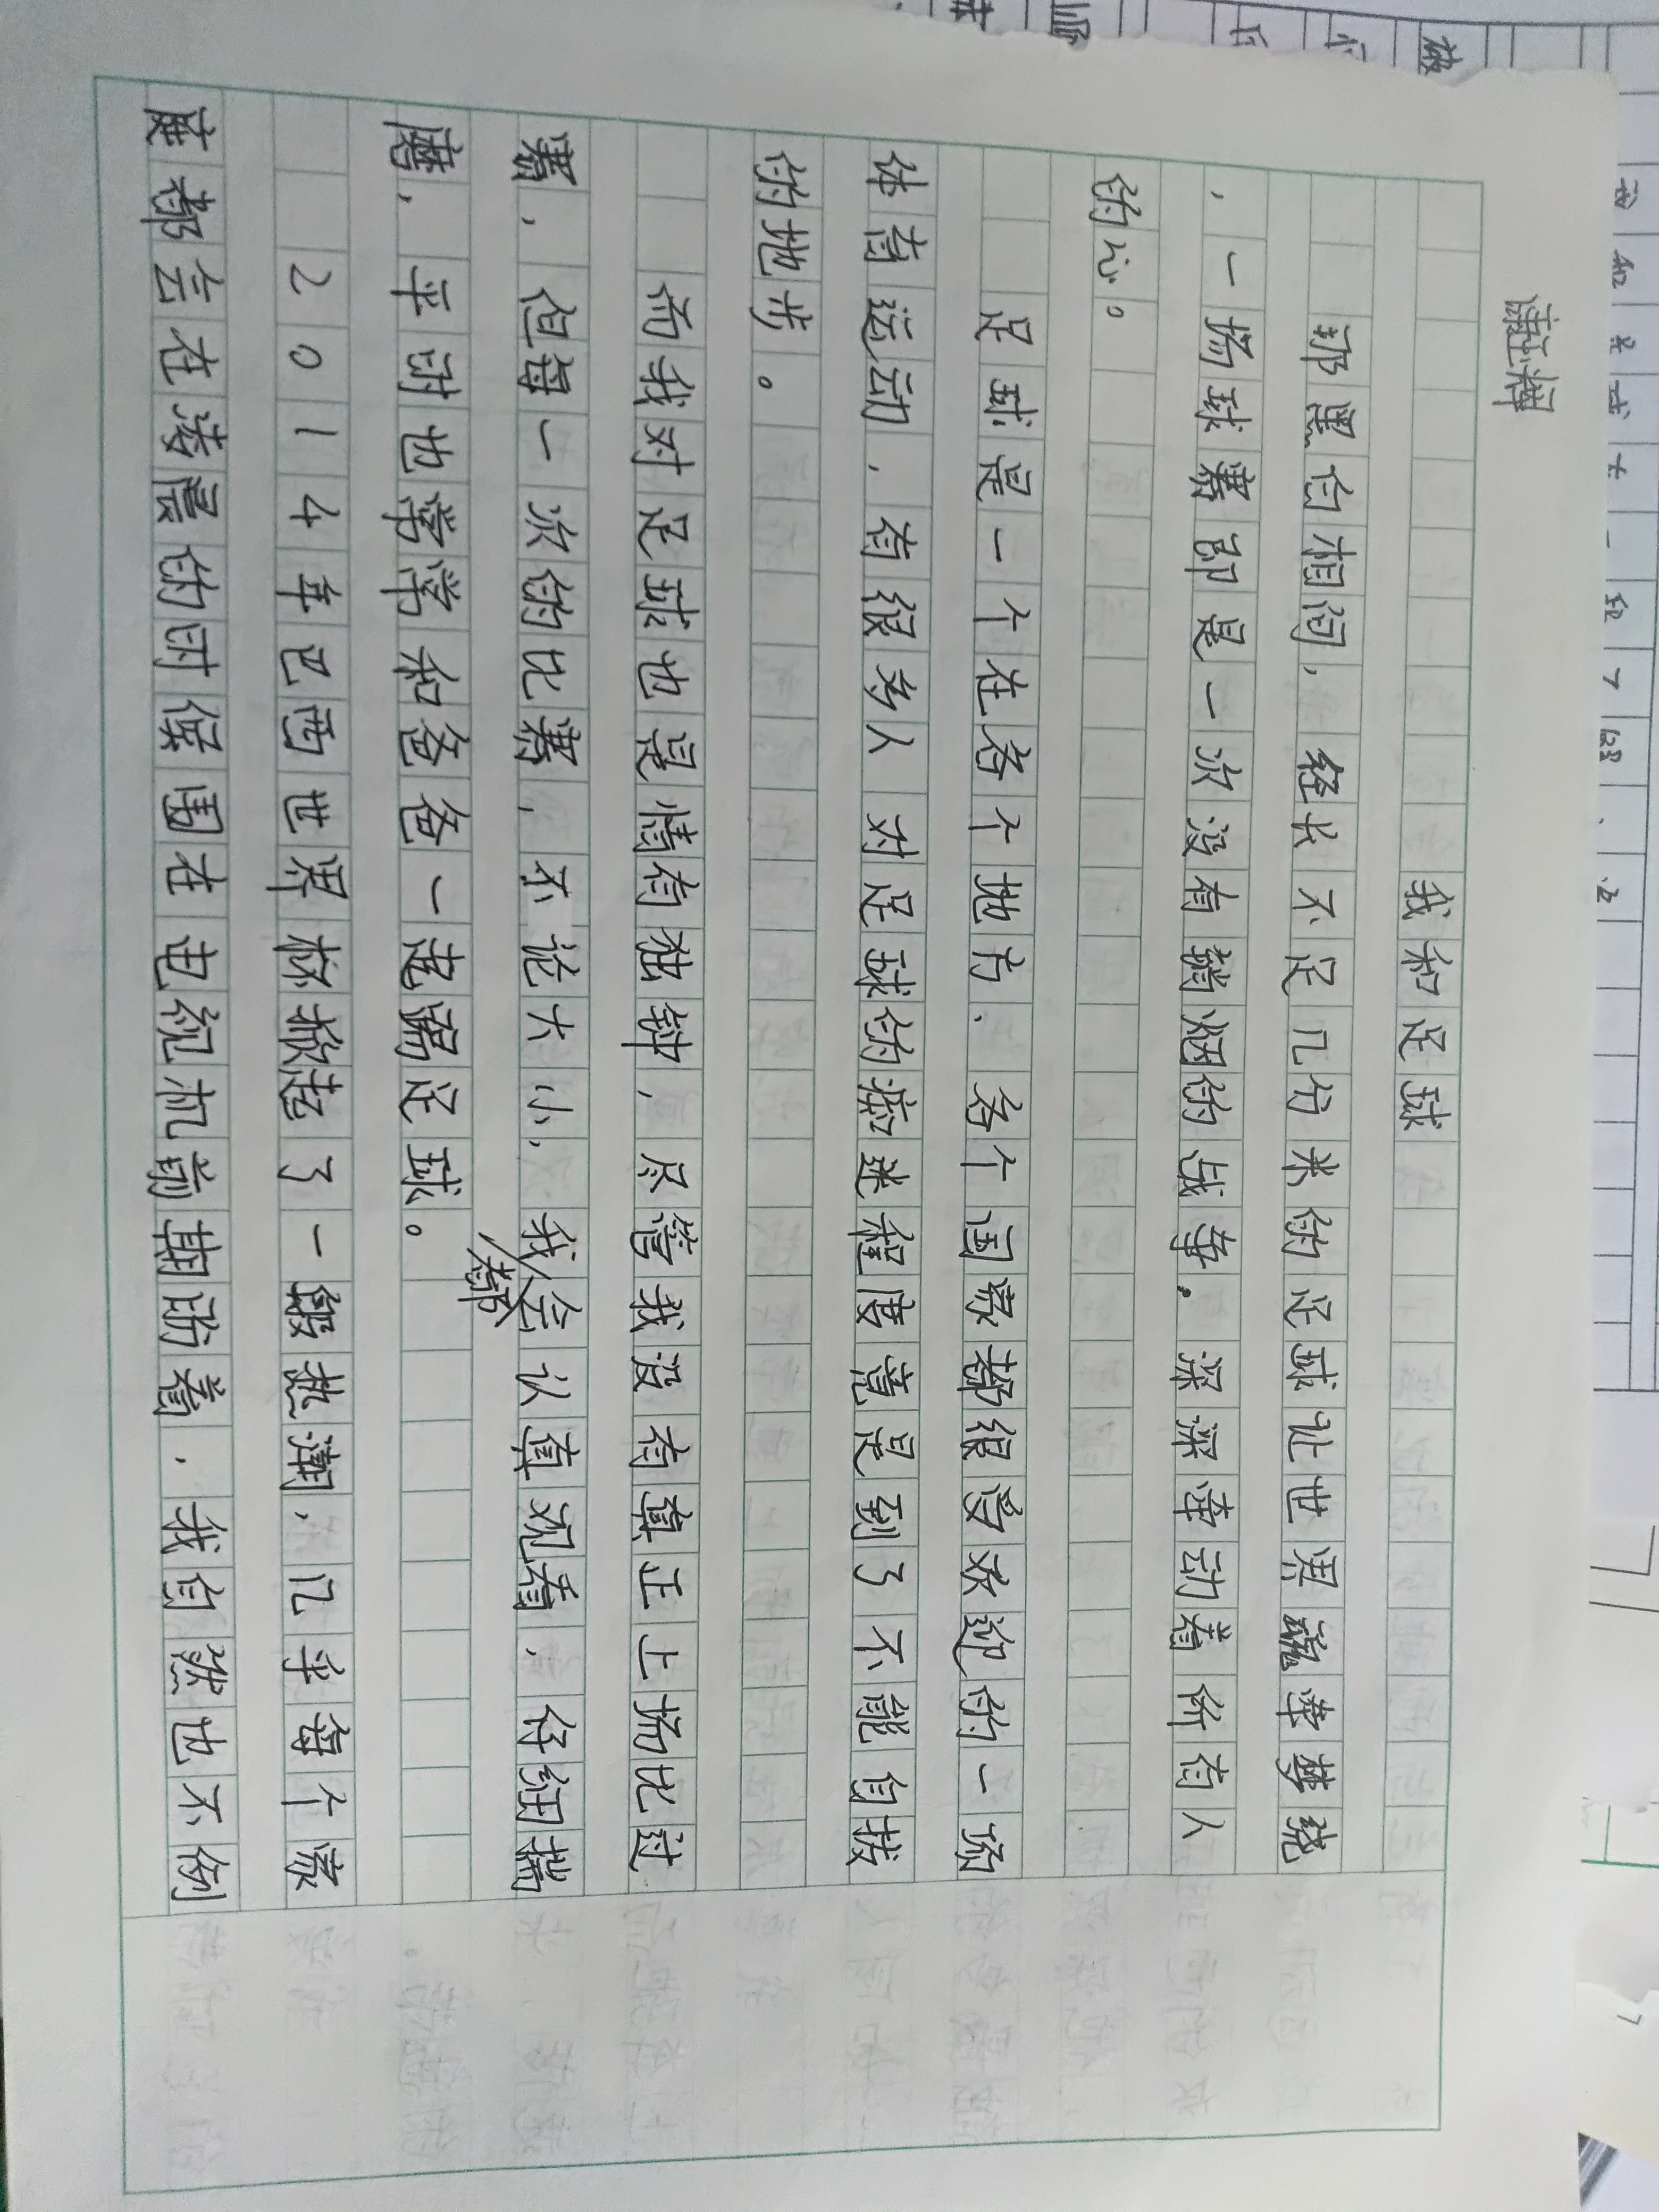 我和足球
那黑白相间，经长不足几分米的足球让世界魂牵梦绕
，一场球赛即是一次没有硝烟的战争。深深牵动着所有人
的心。
足球是一个在各个地方、各个国家都很受欢迎的一项
体育运动，有很多人对足球的痴迷程度竟是到了不能自拔
的地步。
而我对足球也是情有独钟，尽管我没有真正上场比过
赛，但每一次的比赛，不论大小，我都会认真观看，仔细揣
磨，平时也常常和爸爸一起踢足球。
2014年巴西世界杯掀起了一股热潮，几乎每个家
庭都会在凌晨的时候围在电视机前期盼着，我自然也不例